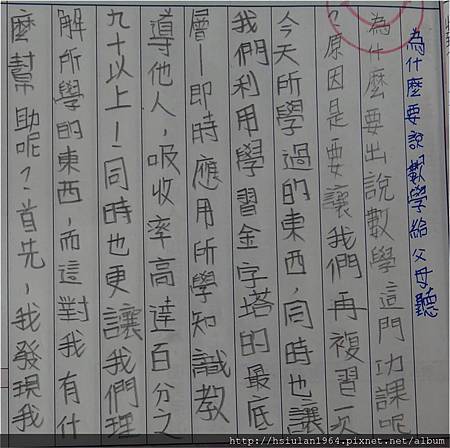 為什麼要說數學給父母聽
為什麼要出說數學這門功課呢
？原因是要讓我們再複習一次
今天所學過的東西，同時也讓
我們利用學習金字塔的最底
層—即時應用所學知識教
導他人，吸收率高達百分之
九十以上！同時也更讓我們理
解所學的東西，而這對我有什
麼幫助呢？首先，我發現我
http://hsiulan1964.pixnet.net/album